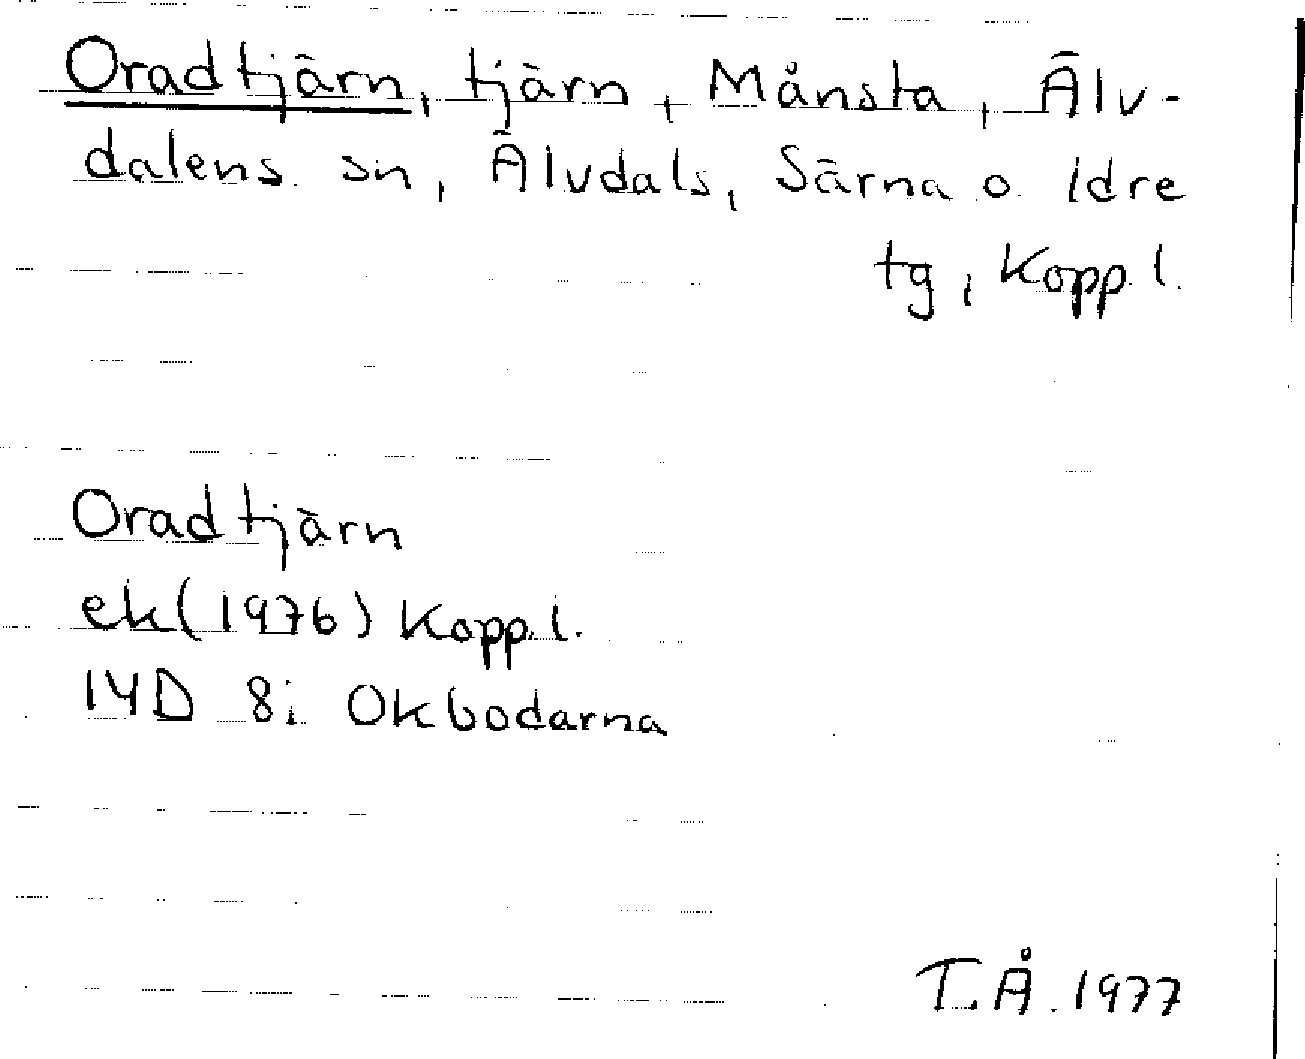 Oradtjärn, tjärn, Månsta, Älv-
dalens sn, Älvdals, Särna o Idre
tg, Kopp. l.
Oradtjärn
ek (1976) Kopp. l.
14D 8i Okbodarna
T.Å. 1977